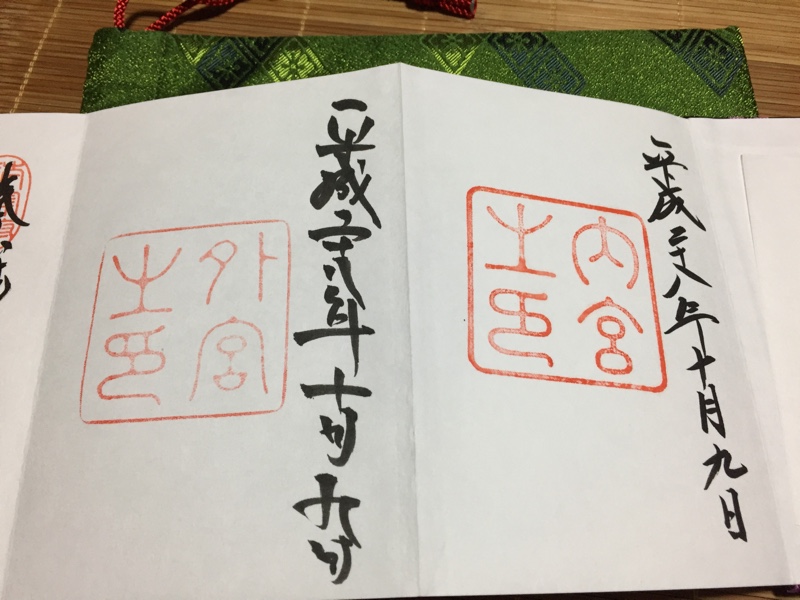 平成二十八年十月九日
内宮
之印
平成二十八年十月九日
外宮
之印